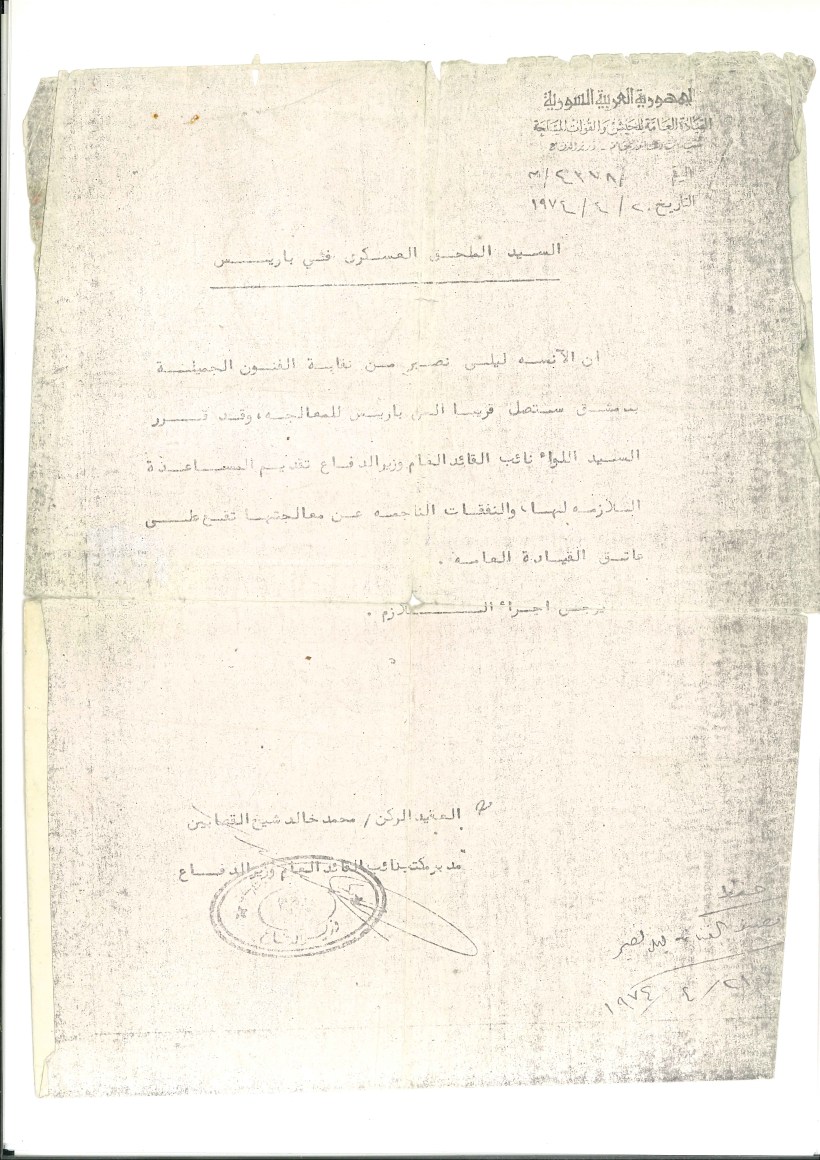 الجمهورية العربية السورية
القيادة العامة للجيش والقوات المسلحة
الرقم / ٤٣٧٨/٣
التاريخ ٢٠/٤/١٩٧٤
السيد الملحق العسكرى في باريس
ان الآنسه ليلى نصير من نقابة الفنون الجميلة
بدمشق ستصل قريبا الى باريس للمعالجه، وقد قرر
السيد اللواء نائب القائد العام وزير الدفاع تقديم المساعدة
اللازمه لها، والنفقات الناجمه عن معالجتها تقع على
عاتق القيادة العامه .
يرجى اجراء اللازم .
العقيد الركن / محمد خالد شيخ القصابين
مدير مكتب نائب القائد العام وزير الدفاع
وزارة الدفاع
ليلى نصير
٢١/٤/١٩٧٤